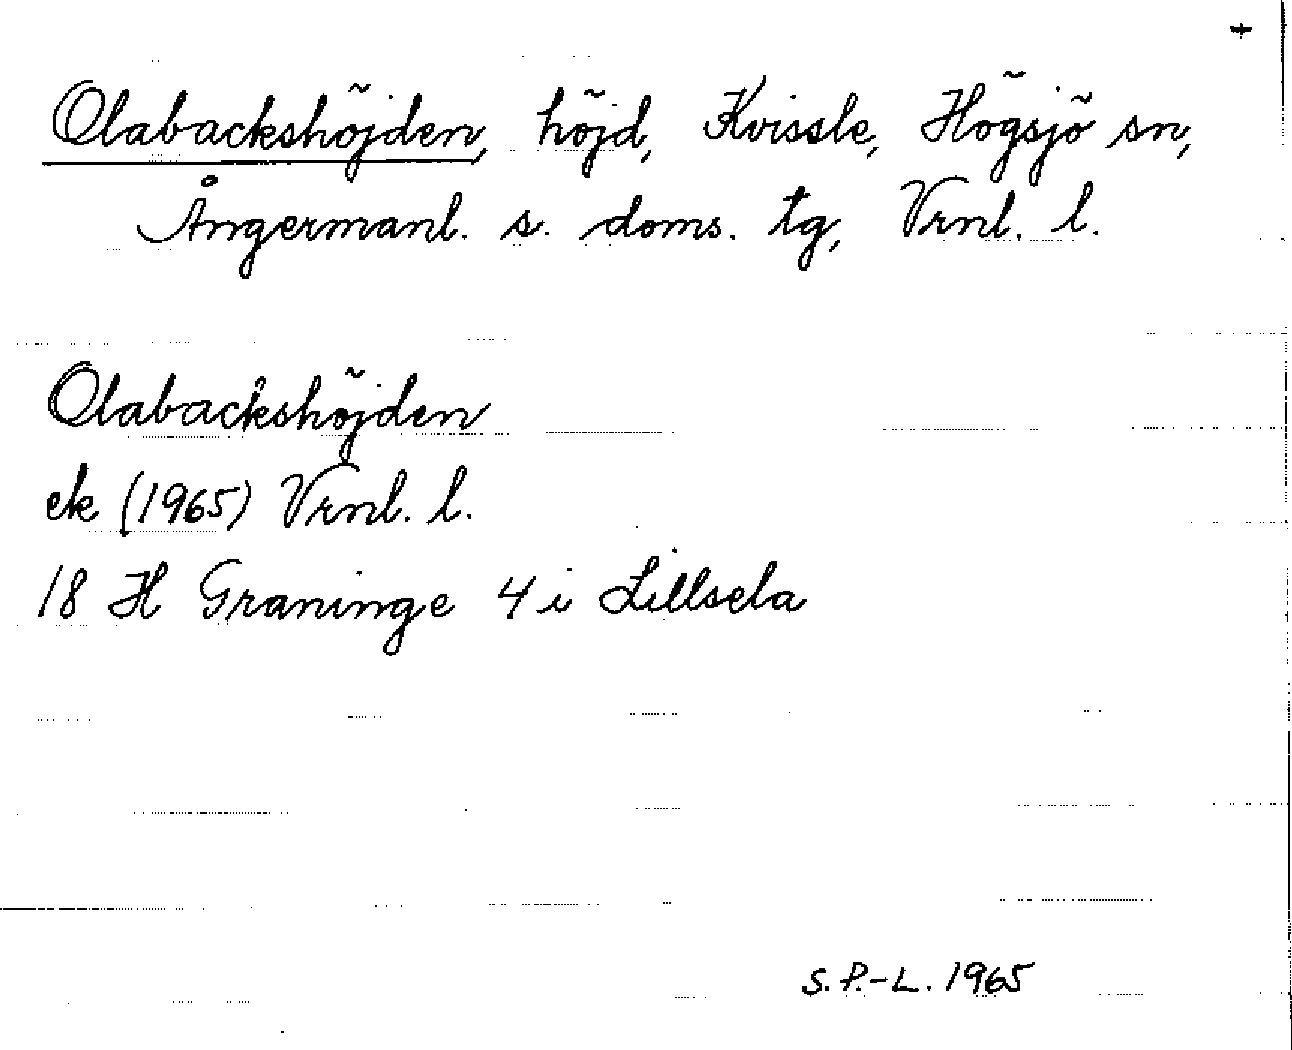 +
Olabackshöjden, höjd, Kvissle, Högsjö sn,
Ångermanl. s. doms. tg, Vrnl. l.
Olabackshöjden
ek (1965) Vrnl. l.
18 H Graninge 4 i Lillsela
S. P.-L. 1965